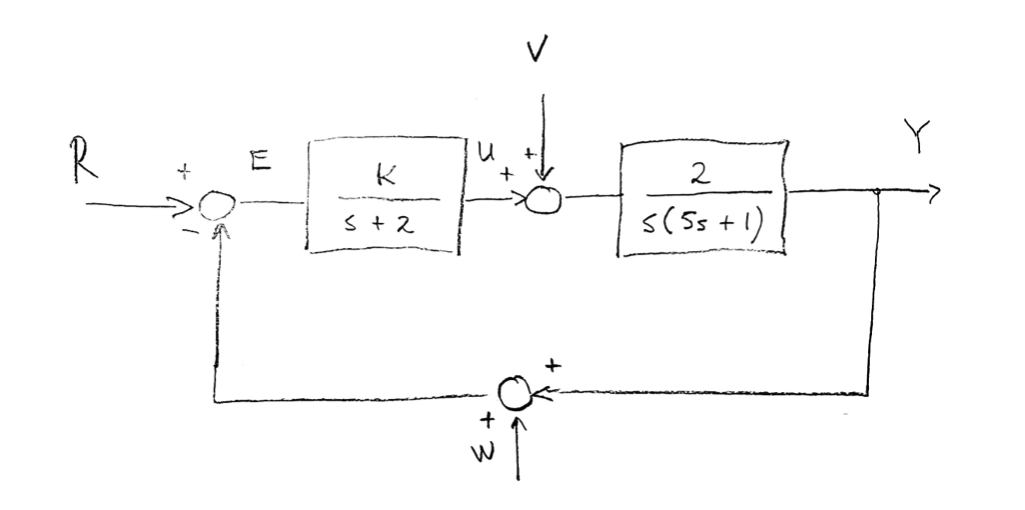 V
R
+
E
K
s + 2
U
+
+
2
s(5s + 1)
Y
-
+
+
W